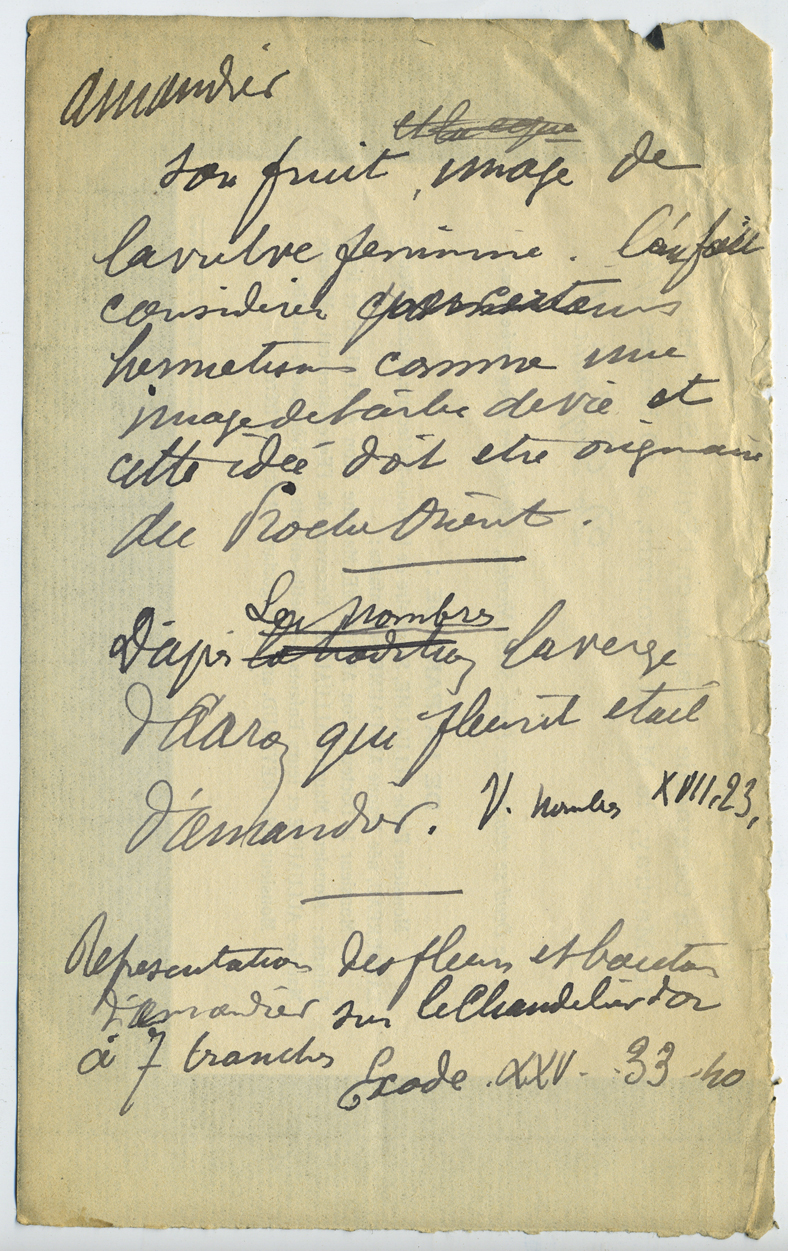 amandier
son fruit, image de
la vulve feminine. l'a fait
considerer par certains
hermetistes comme une
image de l'arbre de vie et
cette idée doit etre originaire
du Proche Orient.
Les Nombres
D'après la tradition la verge
d'Aaron qui fleurit etait
d'amandier. V. nombres XVII, 23,
Representation des fleurs et bouton
d'amandier sur le Chandelier d'or
à 7 branches
Exode XXV - 33 - 40